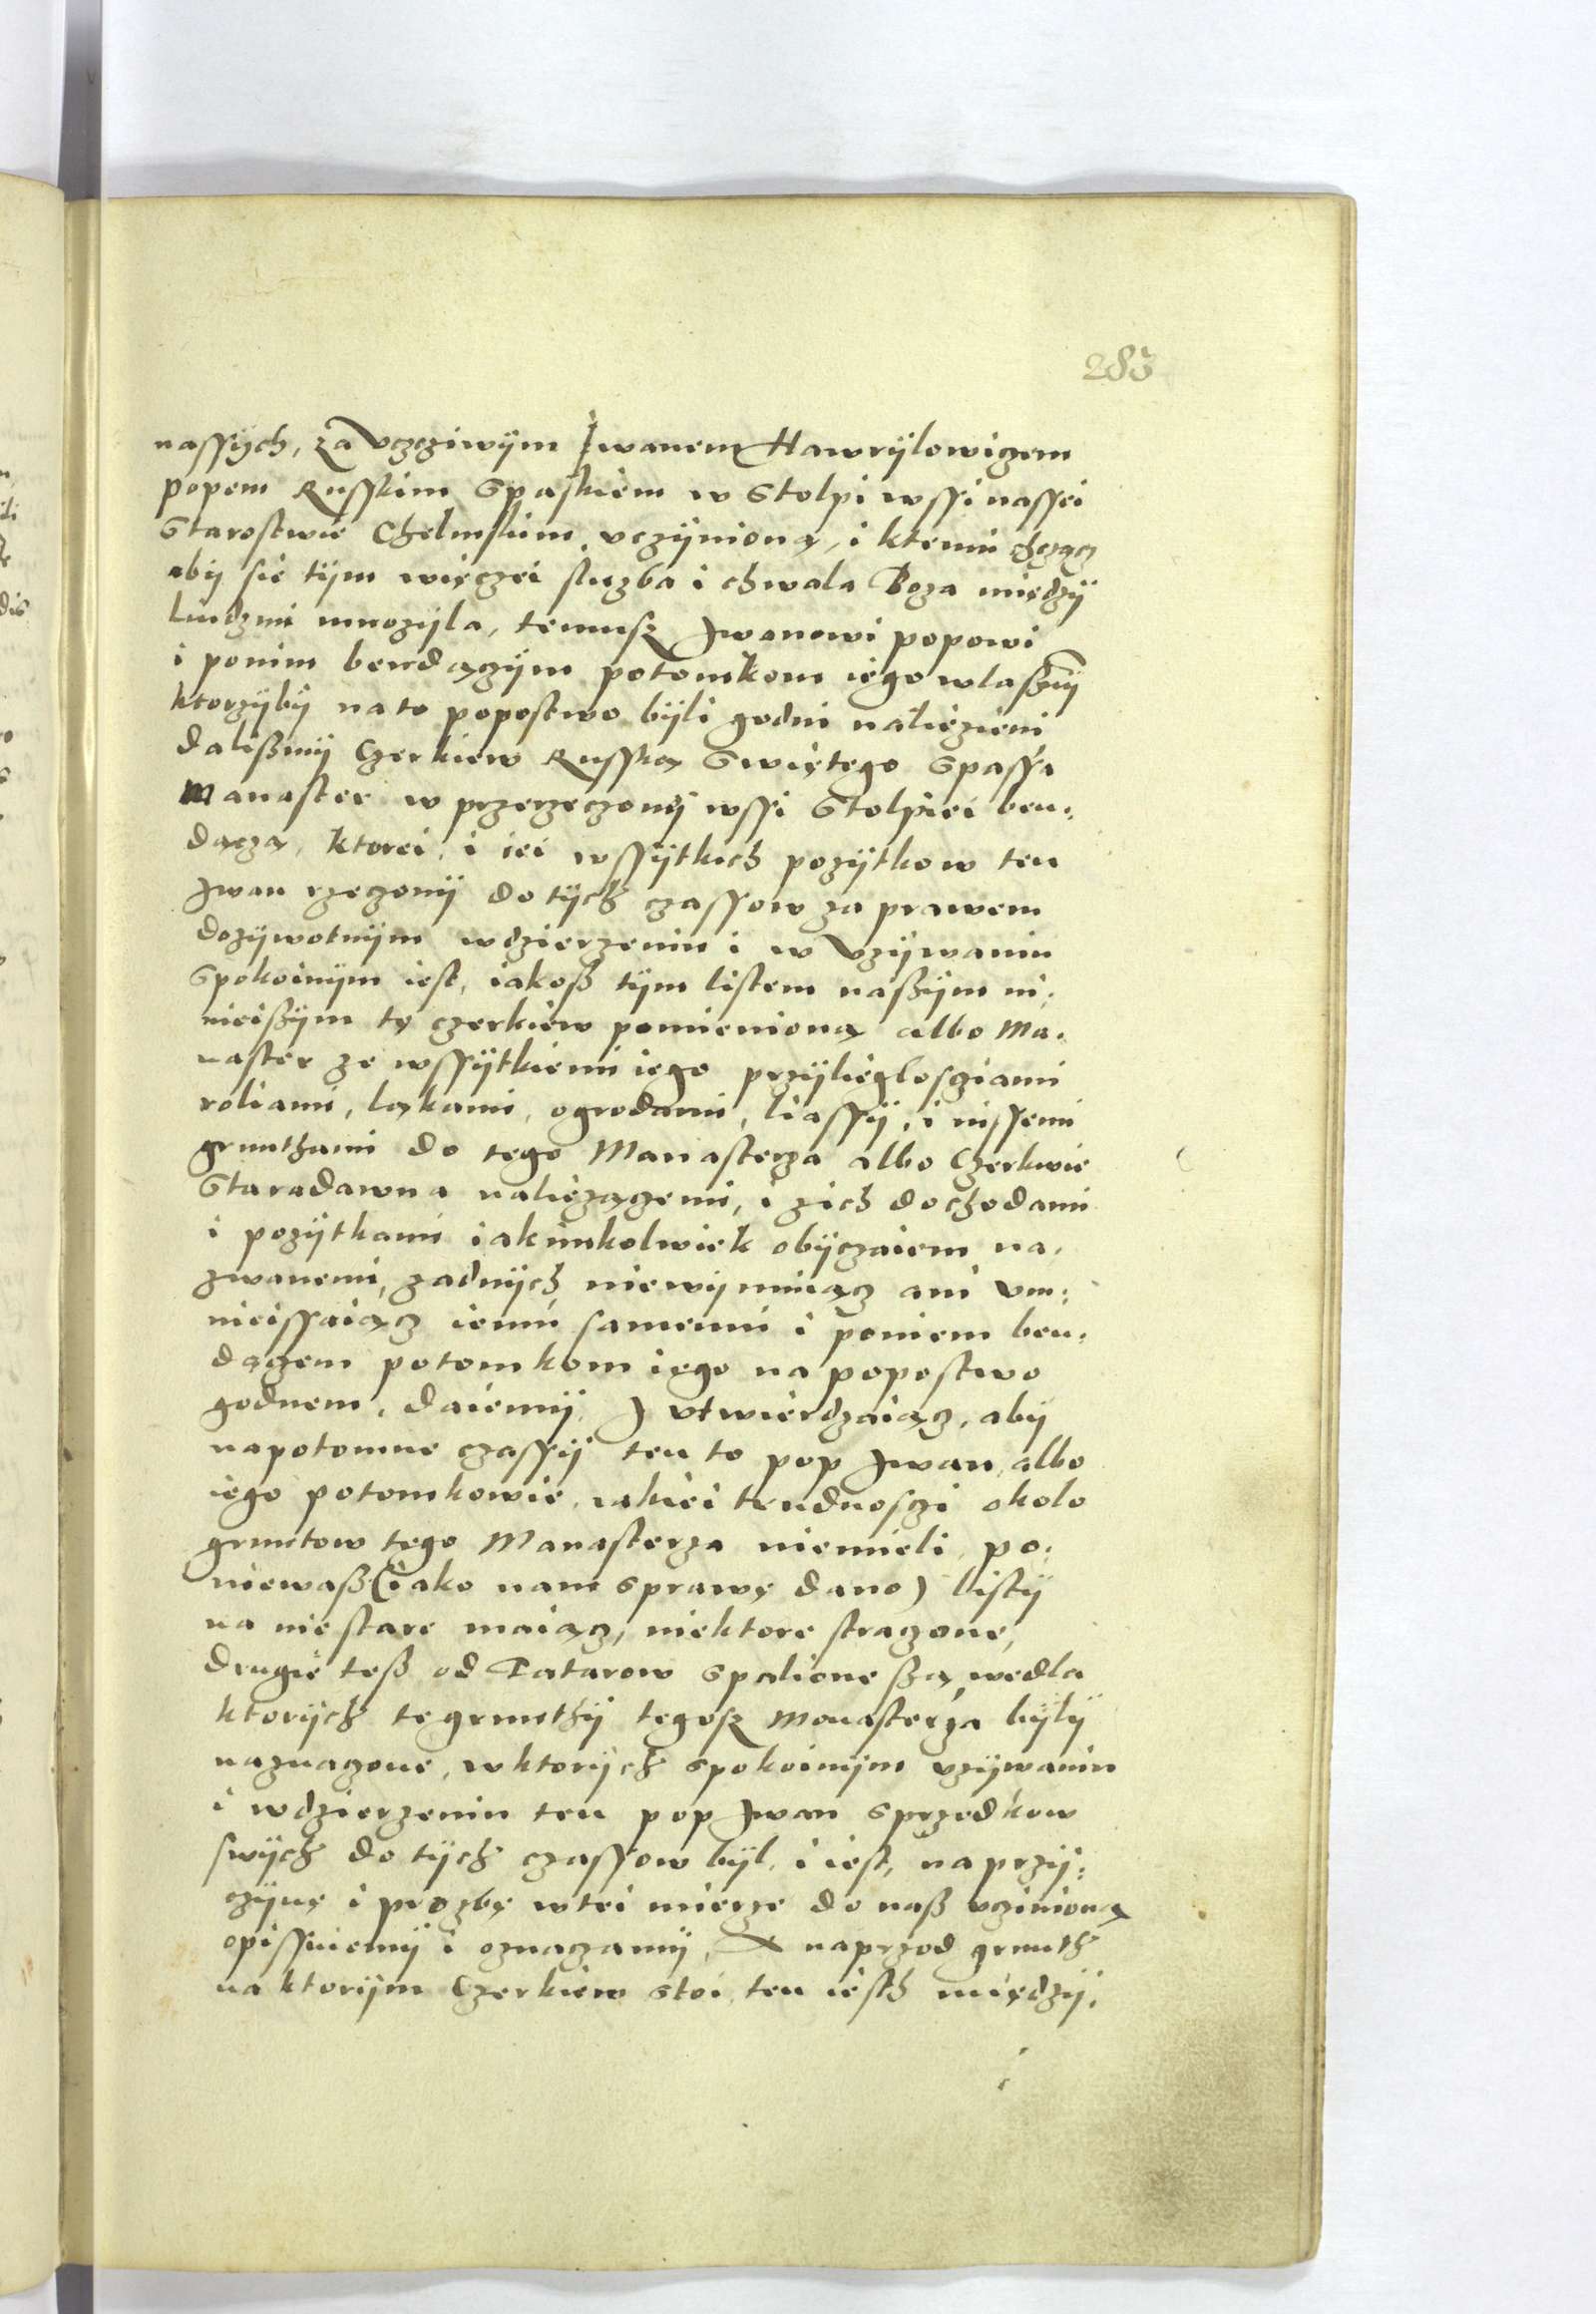 283
nassÿch, za Vczciwÿm Iwanem Hawrÿlowiczem
popem Russkim Spaskiem w Stolpi wssi nassei
Starostwie Chelmskim, vczÿnioną, i ktemu chcząc
abÿ sie tÿm więczei sluzba i chwala Boza międzÿ
ludzmi mnozÿla, temusz Jwanowi popowi
i ponim bendączÿm potomkom iego wlasznÿ
ktorzÿbÿ na to popostwo bÿli godni naliezieni
daliszmÿ Czerkiew Russką Swiętego Spassa
Manaster w przerzeczonÿ wssi Stolpiei ben:
dącza, ktorei, i iei wssÿtkich pozÿtkow ten
Jwan rzeczonÿ do tÿch czassow za prawem
dozÿwotnÿm wdzierzeniu i w Vzÿwaniu
Spokoinÿm iest, iakosz tÿm listem naszÿm ni,
nieiszÿm tę czerkiew pomienioną albo Ma.
naster ze wssÿtkiemi iego przÿliegloscziami
roliami, ląkami, ogrodami, liassÿ, i inssemi
grunthami do tego Manasterza albo Czerkwie
Staradawna naliezączemi, i zich dochodami
i pozÿtkami iakimkolwiek obÿczaiem na,
zwanemi, zadnÿch niewÿmuiącz ani vm:
nieissaiącz iemu samemu i poniem ben:
dączem potomkom iego na popostwo
godnem, daiemÿ J vtwierdzaiącz, abÿ
napotomne czassÿ ten to pop Jwan, albo
iego potomkowie, iakiei trudnosczi okolo
gruntow tego Manasterza niemieli, po:
niewasz (iako nam sprawę dano) listÿ
na nie stare maiącz, niektore straczone,
drugie tesz od Tatarow spalione szą, wedla
ktorÿch te grunthÿ tegosz Monasterza bÿlÿ
naznaczone, w ktorÿch spokoinÿm vzÿwaniu
i wdzierzeniu ten pop Jwan sprzedkow
swÿch do tÿch czassow bÿl, i iest, na przÿ:
czÿnę i prozbę wtei mierze do nasz vczinioną
opissuiemÿ i oznaczamÿ, A naprzod grunth
na ktorÿm Czerkiew stoi, ten iesth międzÿ,